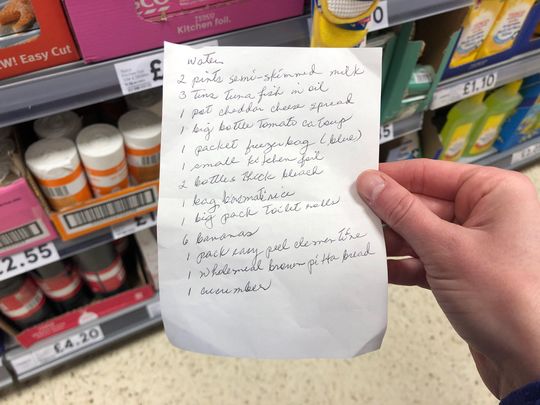 Easy Cut
TESCO
Kitchen foil.
£
Water
2 pints semi-skimmed milk
3 Tins tuna fish in oil
1 pot cheddar cheese spread
1 big bottle Tomato catsup
1 packet freezer bag (blue)
1 small kitchen foil
2 bottles thick bleach
1 bag basmati rice
1 big pack toilet rolls
6 bananas
1 pack easy peel clementine
1 wholemeal brown pitta bread
1 cucumber
£1.10
2.55
£4.20